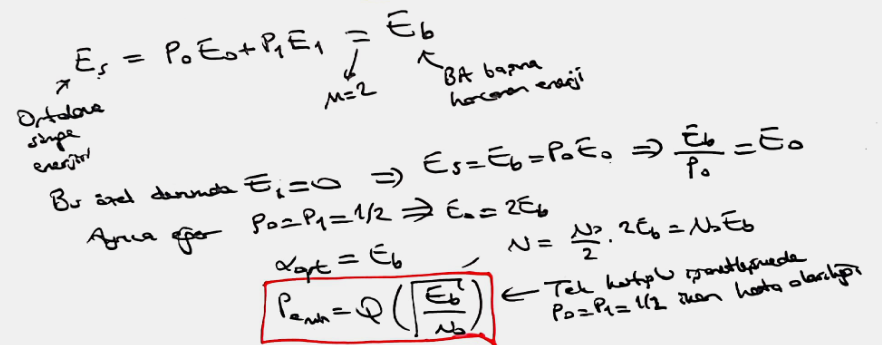 Es = P0 E0 + P1 E1 = Eb
M=2
Ortalama simge enerjisi
BA başına harcanan enerji
Bu özel durumda E1=0 ⇒ Es=Eb=P0E0 ⇒ Eb/P0 = E0
Ayrıca eğer P0=P1=1/2 ⇒ E0=2Eb
αopt = Eb
N = N0/2 · 2Eb = N0Eb
Pe,min = Q(√(Eb/N0))
← Tek kutuplu işaretleşmede
P0=P1=1/2 iken hata olasılığı